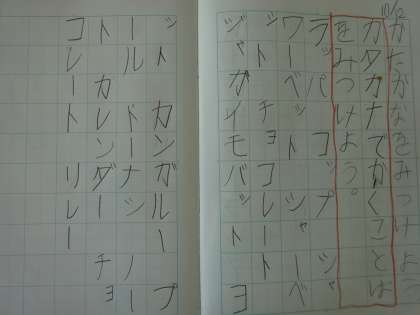 10/2
かたかなをみつけよう
カタカナでかくことば
をみつけよう。
ラッパ コップ シャ
ワー ベット シャーベ
ット チョコレート
ジャガイモ バット ヨ
ット カンガルー プ
ール ドーナツ ノー
ト カレンダー チョ
コレート リレー